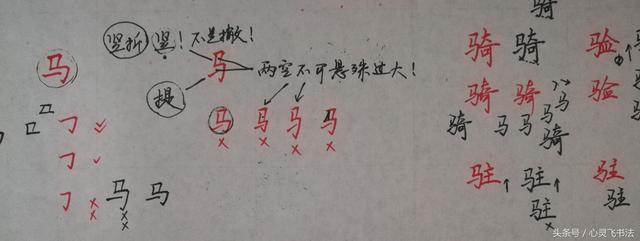 竖折 竖！不是撇！
马 马
提 两空不可悬殊过大！
马 马 马 马
马 马
骑
骑 骑 验
骑 骑 马 验
骑 马 马 马 骑
驻 驻 驻
驻 驻
头条号 / 心灵飞书法